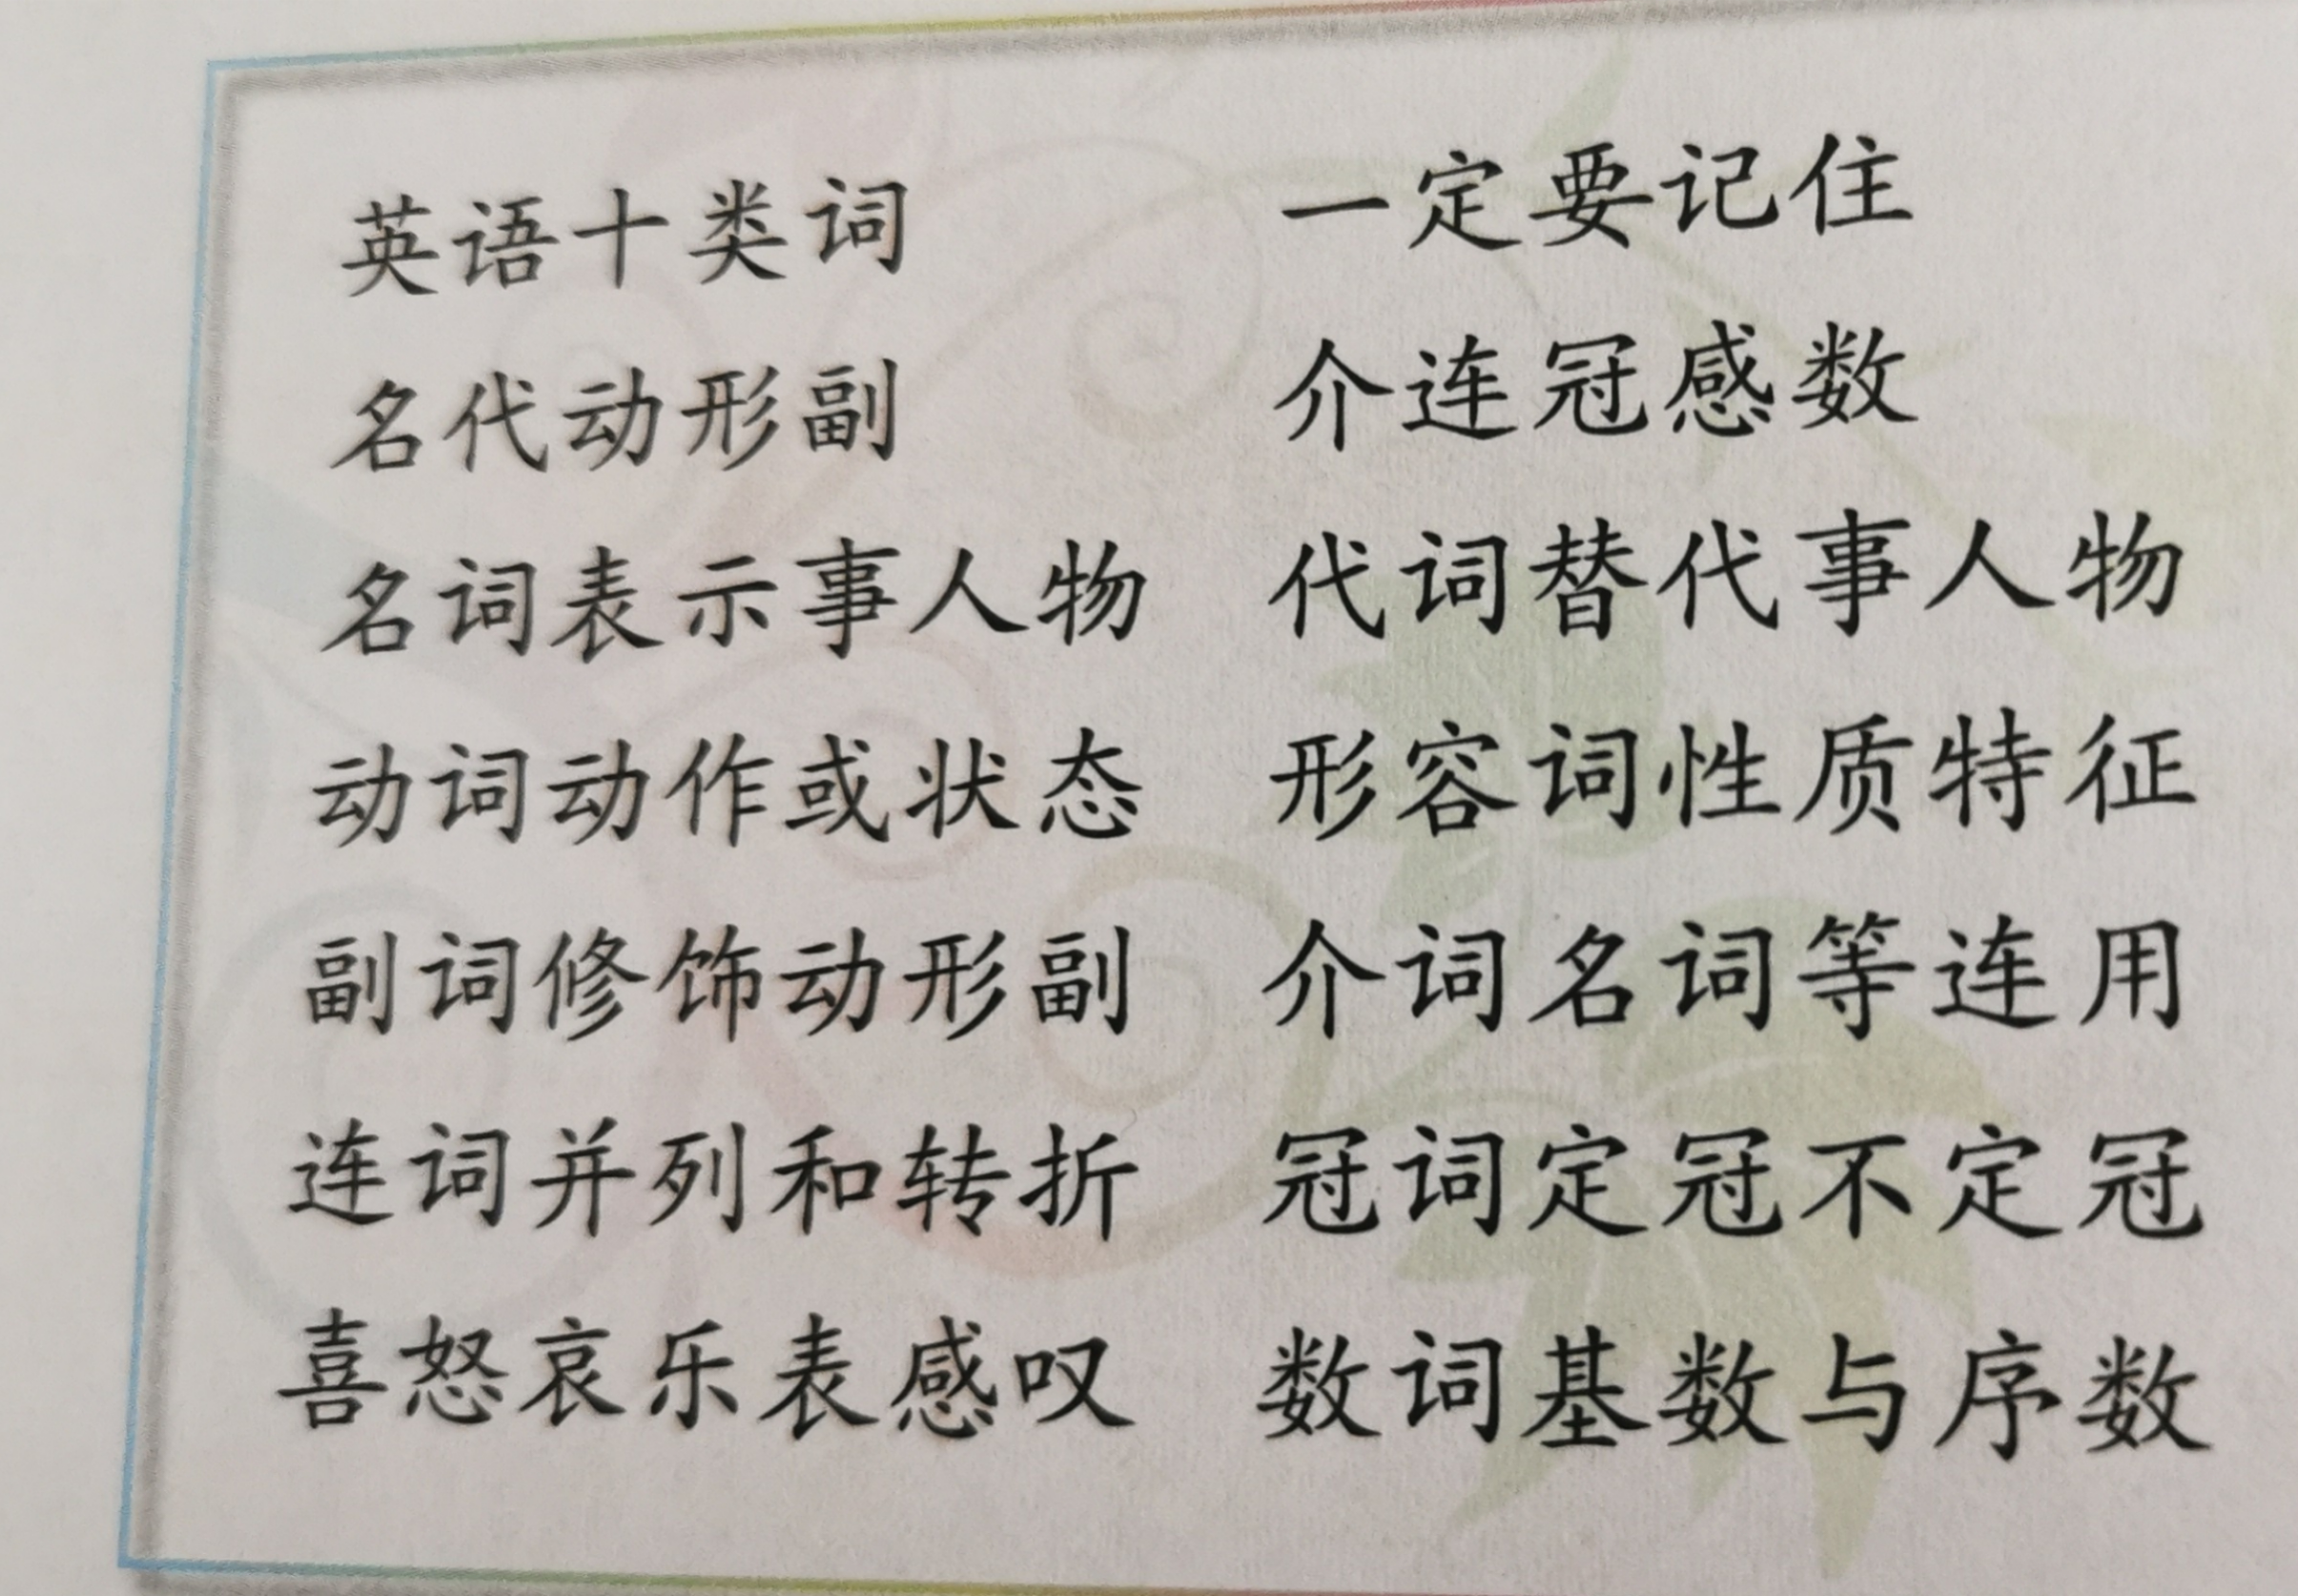 英语十类词 一定要记住
名代动形副 介连冠感数
名词表示事人物 代词替代事人物
动词动作或状态 形容词性质特征
副词修饰动形副 介词名词等连用
连词并列和转折 冠词定冠不定冠
喜怒哀乐表感叹 数词基数与序数